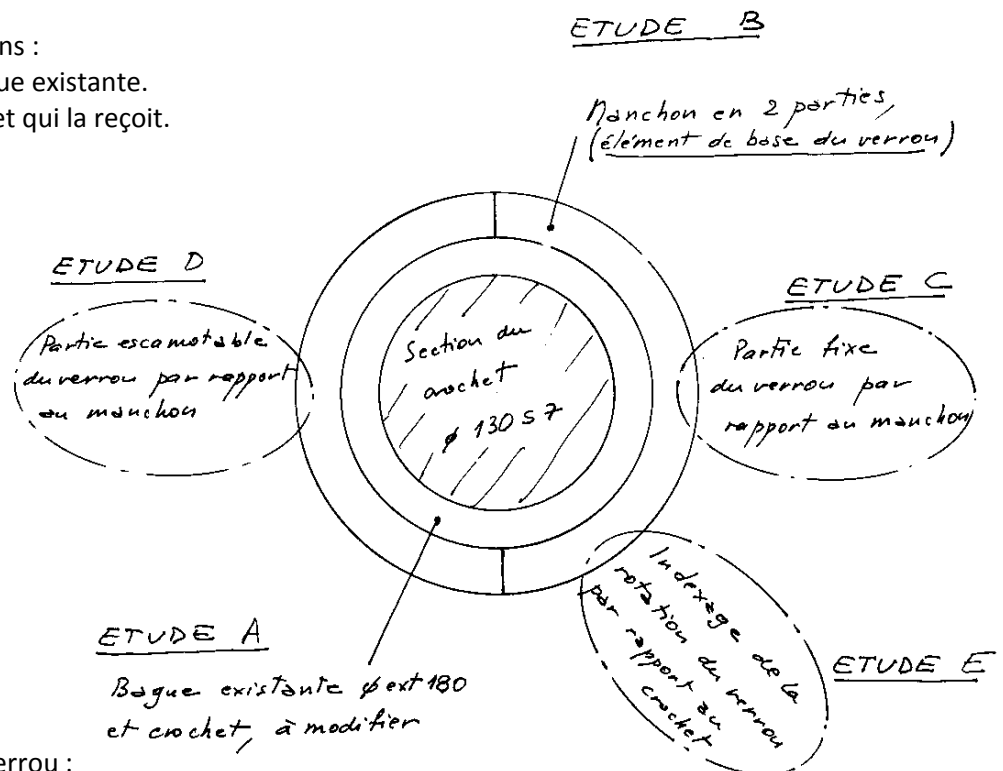 ns :
ue existante.
et qui la reçoit.
ETUDE B
Manchon en 2 parties,
(élément de base du verrou)
ETUDE D
Partie escamotable
du verrou par rapport
au manchon
Section du
crochet
ø 130 s 7
ETUDE C
Partie fixe
du verrou par
rapport au manchon
ETUDE A
Bague existante ø ext 180
et crochet, à modifier
Indexage de la
rotation du verrou
par rapport au
crochet
ETUDE E
errou :